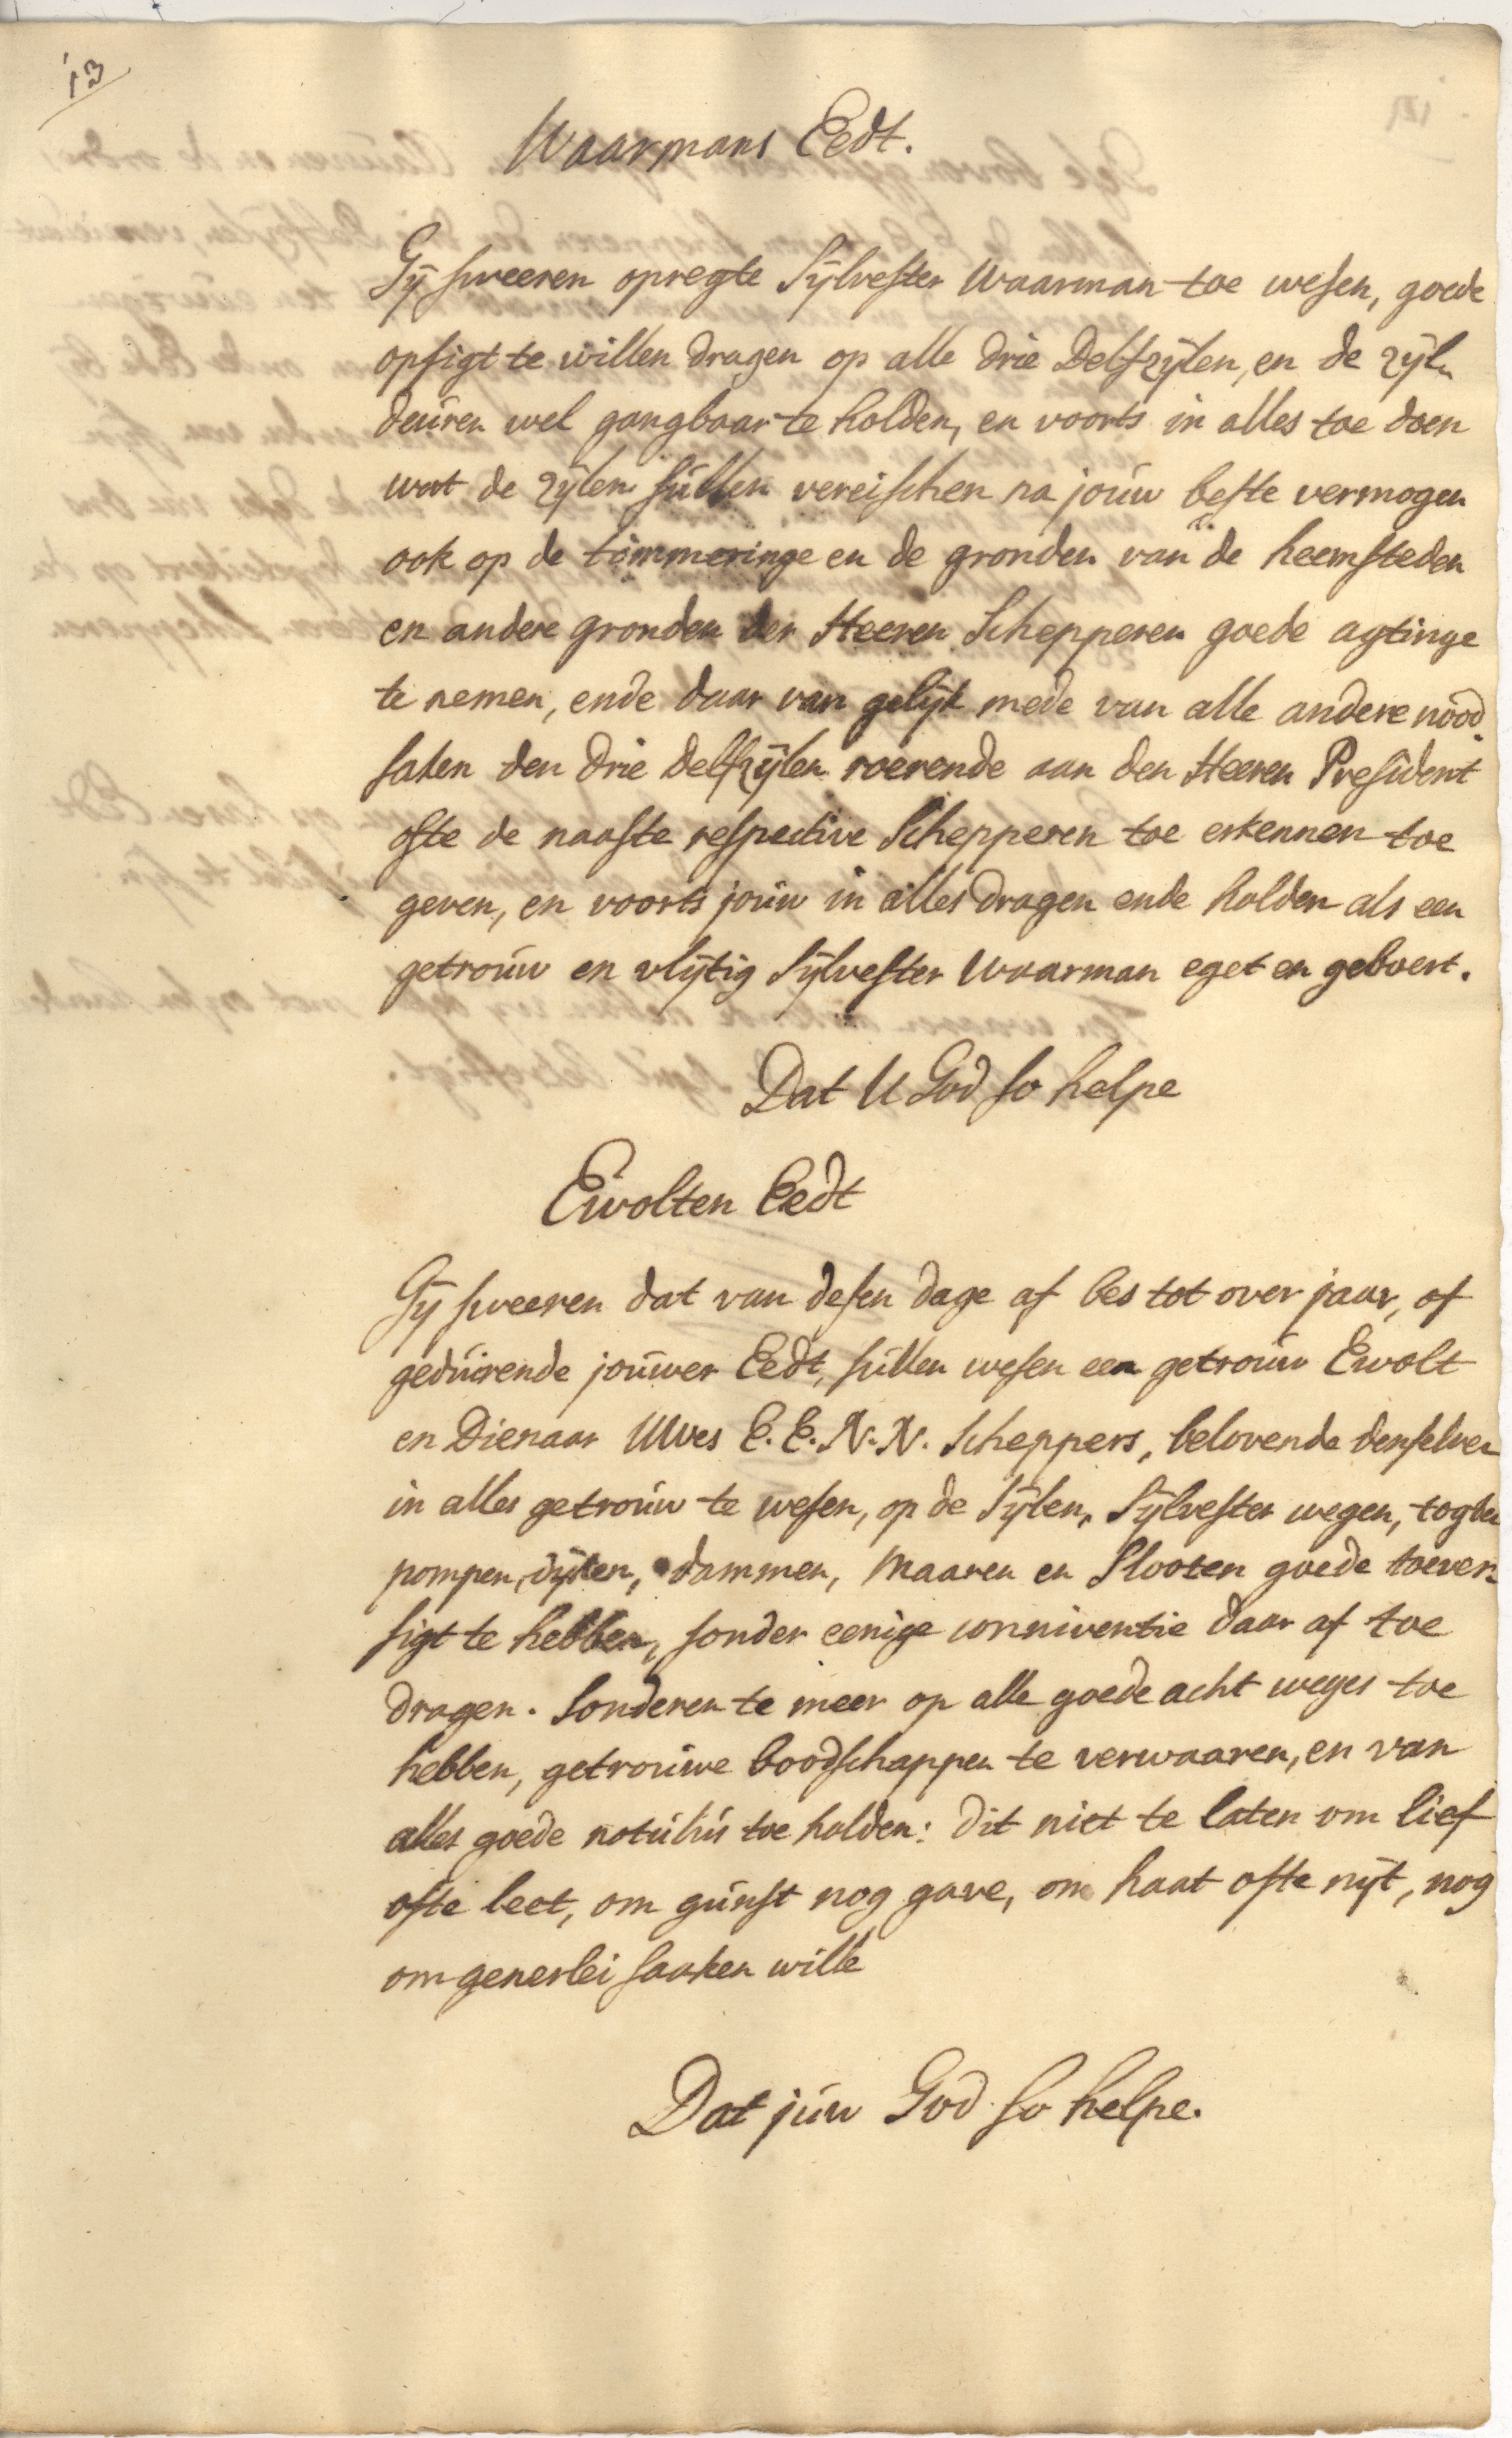 13
Waarmans Eedt.
Gÿ sweeren opregte Sÿlvester Waarman toe wesen, goede
opsigt te willen dragen op alle drie Delfzÿlen, en de zÿl-
deuren wel gangbaar te holden, en voorts in alles toe doen
wat de zÿlen sullen vereischen na jouw beste vermogen
ook op de timmeringe en de gronden van de heemsteden
en andere gronden der Heeren Schepperen goede agtinge
te nemen, ende daar van gelÿk mede van alle andere nood-
saken den drie delfzÿlen roerende aan den Heeren President
ofte de naaste respective Schepperen toe erkennen toe
geven, en voorts jouw in alles dragen ende holden als een
getrouw en vlÿtig Sÿlvester Waarman eget en geboert.
Dat U God so helpe
Ewolten Eedt
Gÿ sweeren dat van desen dage af bes tot over jaar, of
gedurende jouwer Eedt, sullen wesen een getrouw Ewolt
en Dienaar Uwes E. E. N. N. Scheppers, belovende denselven
in alles getrouw te wesen, op de Sÿlen, Sÿlvester wegen, togten
pompen, dÿken, dammen, Maaren en Slooten goede toever-
sigt te hebben, sonder eenige conniventie daar af toe
dragen. Sonderen te meer op alle goede acht weges toe
hebben, getrouwe boodschappen te verwaaren, en van
alles goede notulus toe holden: dit niet te laten om lief
ofte leet, om gunst nog gave, om haat ofte nÿt, nog
om generlei saaken wille
Dat juw God so helpe.